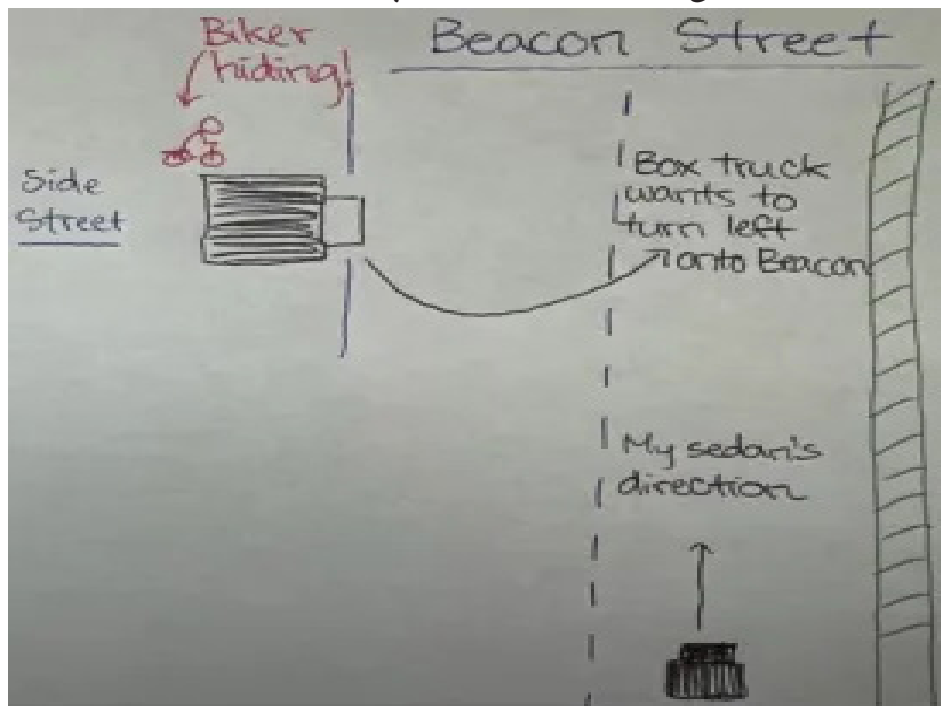 Biker
hiding!
Beacon Street
Side
Street
Box truck
wants to
turn left
onto Beacon
My sedan's
direction